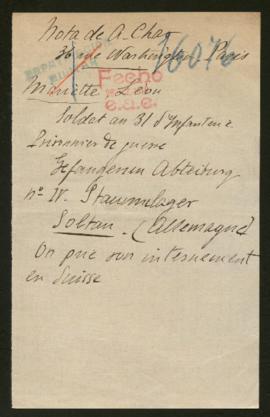 Nota de A. Chag
36 rue Washington Paris
16076
Fecho
e.a.e.
Mariette Léon
Soldat au 31 d'Infanterie
Prisonnier de guerre
Gefangenen Abteilung
no IV. Stammlager
Soltau. (Allemagne)
On prie son internement
en Suisse